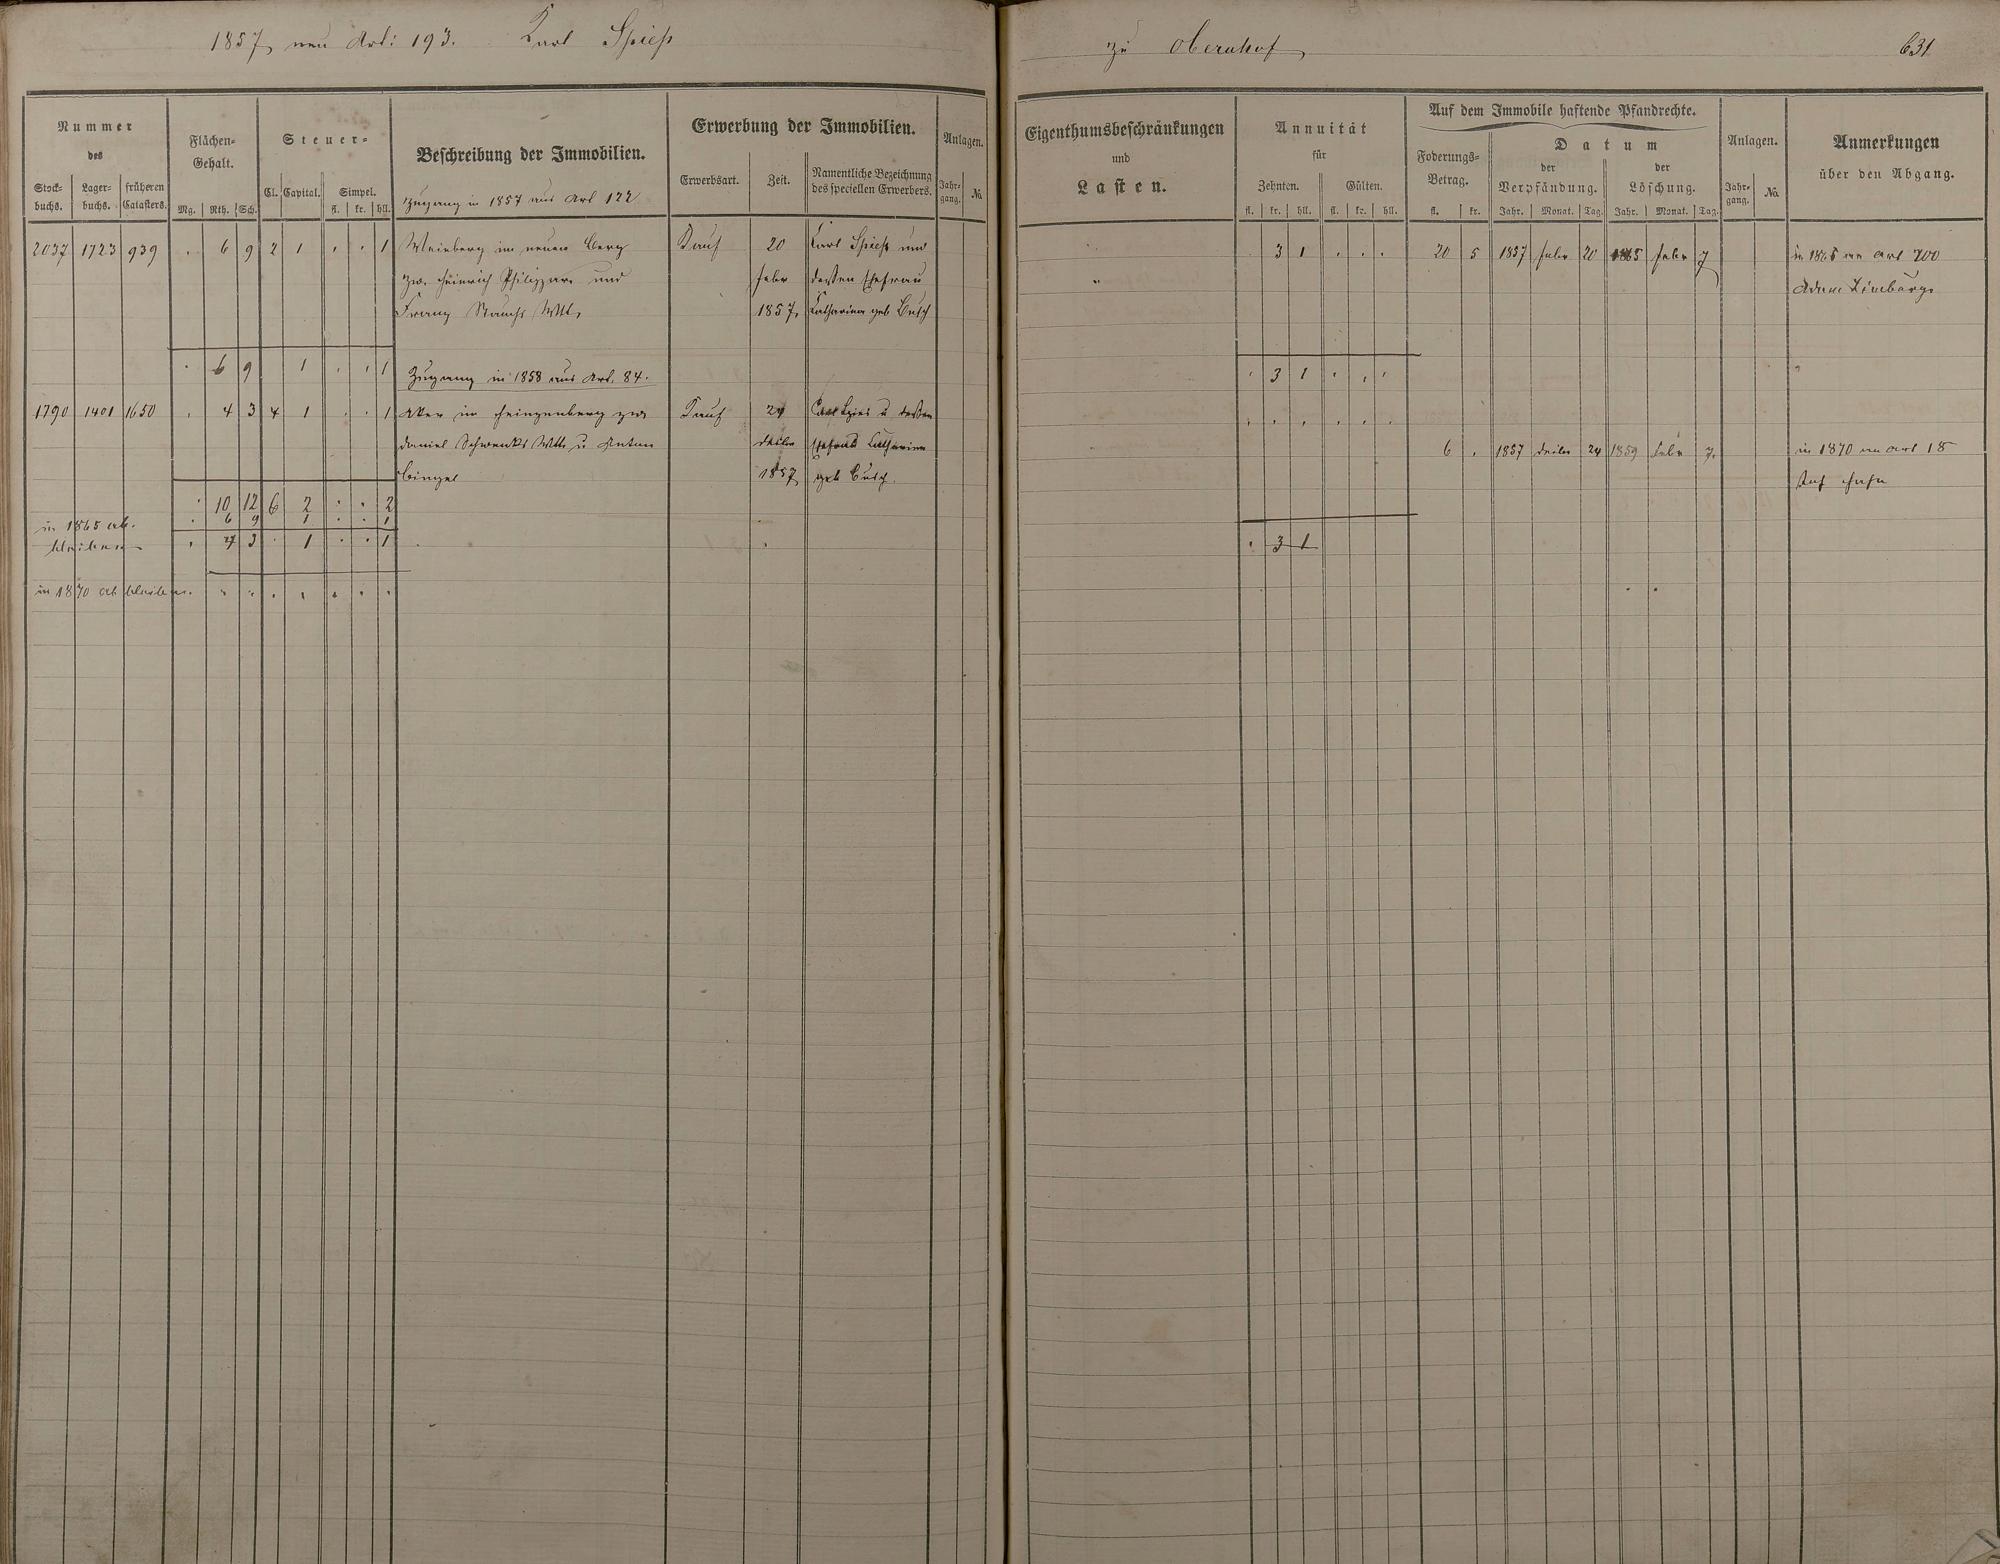 1857 neu Art: 193. Karl Spieß
zu Obernhof
631
Nummer
des
Stock-
buchs.
Lager-
buchs.
früheren
Catasters.
Flächen-
Gehalt.
Mg. Rth. Sch.
Steuer-
Cl. Capital. Simpel.
fl. kr. hll.
Beschreibung der Immobilien.
Zugang in 1857 aus Art 122
Erwerbung der Immobilien.
Erwerbsart. Zeit.
Namentliche Bezeichnung
des speciellen Erwerbers.
Anlagen.
Jahr-
gang. No.
Eigenthumsbeschränkungen
und
Lasten.
Annuität
für
Zehnten. Gülten.
fl. kr. hll. fl. kr. hll.
Auf dem Immobile haftende Pfandrechte.
Foderungs-
Betrag.
fl. kr.
Datum
der
Verpfändung.
der
Löschung.
Jahr. Monat. Tag. Jahr. Monat. Tag.
Anlagen.
Jahr-
gang. No.
Anmerkungen
über den Abgang.
2037 1723 939 . 6 9 2 1 . . 1 Weinberg im neuen Berg Kauf 20 Karl Spieß und . 3 1 . . . 20 5 1857 Febr 20 1865 Febr 7 in 1865 an Art 700
zw. Heinrich Philippar und Febr dessen Ehefrau " Adam Limburg
Franz Rauchs Wtt. 1857. Catharina geb Busch
. 6 9 1 . . 1 . 3 1 . . .
Zugang in 1858 aus Art. 84.
1790 1401 1650 . 4 3 4 1 . . 1 Acker im zw. Kauf 24 Carl Spies u dessen . . . . . .
Daniel Schwenks Wtt. u Anton Ehefrau Catharina 6 . 1857 24 1859 Febr 7. in 1870 an Art 18
Bingel 1857 geb Busch.
. 10 12 6 2 . . 2
in 1865 ab. . 6 9 1 . . 1
bleiben . 4 3 . 1 . . 1 . 3 1
in 1870 ab bleiben . . . . . . . .